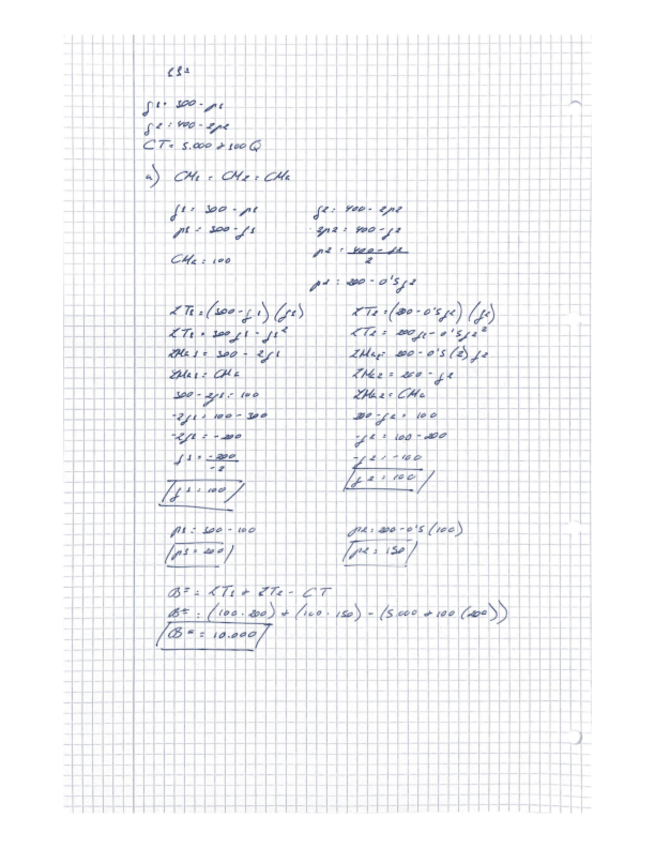 q1 = 300 - p1
q2 = 400 - 2p2
CT = 5.000 + 100Q
a) CM1 = CM2 = CMa
q1 = 300 - p1
p1 = 300 - q1
CMa = 100
q2 = 400 - 2p2
2p2 = 400 - q2
p2 = 400 - q2
2
p2 = 200 - 0'5q2
IT1 = (300 - q1) (q1)
IT1 = 300q1 - q1²
IMa1 = 300 - 2q1
IMa1 = CMa
300 - 2q1 = 100
-2q1 = 100 - 300
-2q1 = -200
q1 = -200
-2
q1 = 100
IT2 = (200 - 0'5q2) (q2)
IT2 = 200q2 - 0'5q2²
IMa2 = 200 - 0'5(2)q2
IMa2 = 200 - q2
IMa2 = CMa
200 - q2 = 100
-q2 = 100 - 200
-q2 = -100
q2 = 100
p1 = 300 - 100
p1 = 200
p2 = 200 - 0'5(100)
p2 = 150
Bº = IT1 + IT2 - CT
Bº = (100 · 200) + (100 · 150) - (5.000 + 100(200))
Bº = 10.000